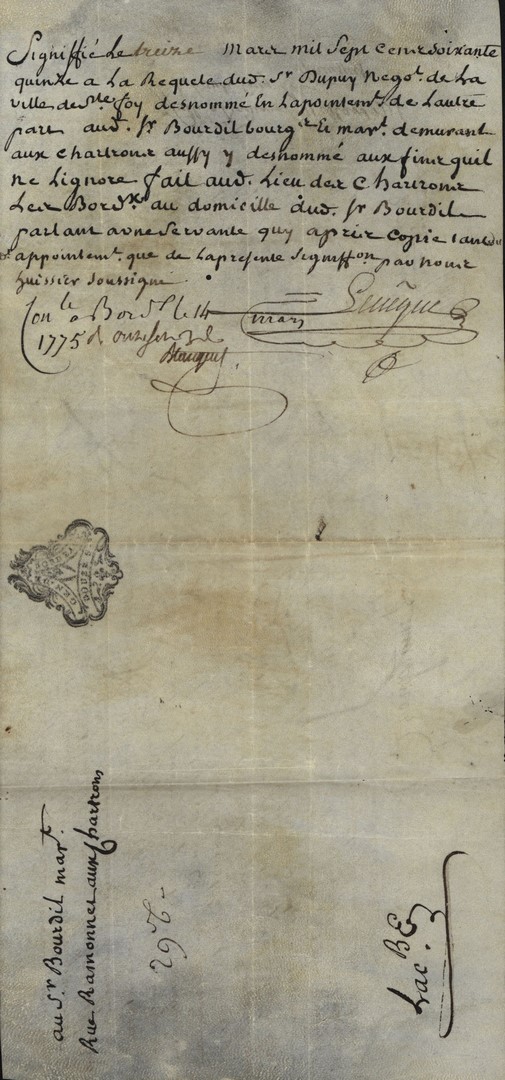 Signiffié Le treize mars mil Sept Cent Soixante
quinze a La Requete dud. Sr Dupuy Negot. de La
ville de Ste foy desnommé En Lapointemt. de Lautre
part aud. Sr Bourdil bourgs. Et mart. demurant
aux Chartrons aussy y desnommé aux fins quil
ne Lignore fait aud. Lieu des Chartrons
Les Bordx. au domicille dud. Sr Bourdil
parlant a une Servante quy a pris Copie tant dud.
appointemt. que de La presente Signiffon par nous
huissier Soussigné.
Senêque
Conle. a Bordx. le 14 mars
1775
au Sr. Bourdil mart.
Rue Ramonnet aux Chartrons
Lac. BE